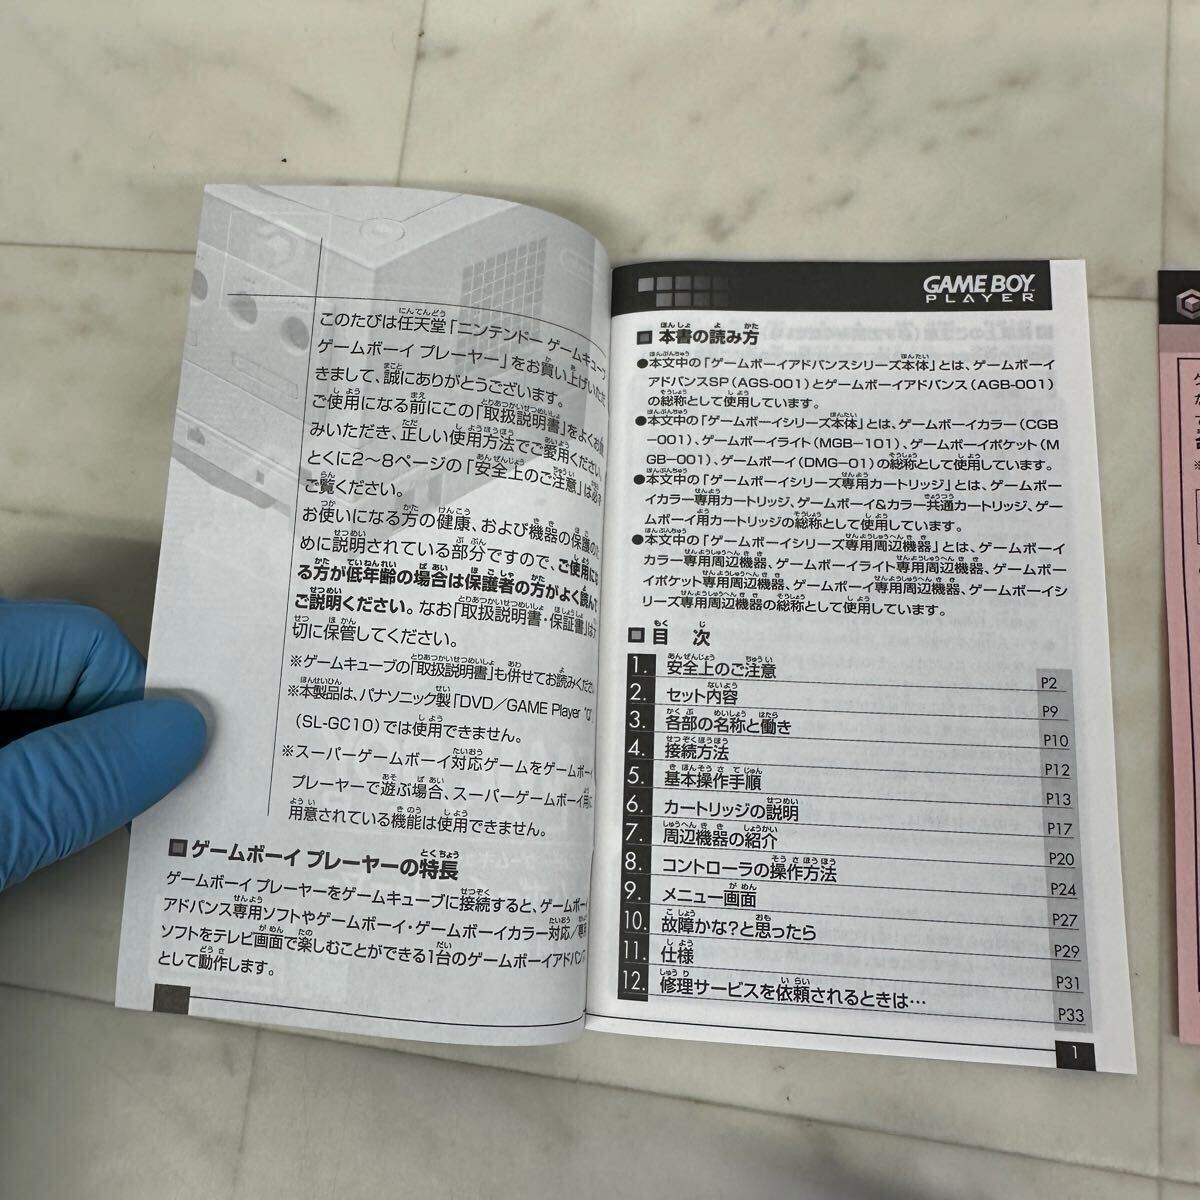 このたびは任天堂「ニンテンドー ゲームキューブ
ゲームボーイ プレーヤー」をお買い上げいただ
きまして、誠にありがとうございます。
ご使用になる前にこの「取扱説明書」をよくお読
みいただき、正しい使用方法でご愛用ください。
とくに2〜8ページの「安全上のご注意」は必ず
ご覧ください。
お使いになる方の健康、および機器の保護のた
めに説明されている部分ですので、ご使用にな
る方が低年齢の場合は保護者の方がよく読んで
ご説明ください。なお「取扱説明書・保証書」は大
切に保管してください。
※ゲームキューブの「取扱説明書」も併せてお読みください
※本製品は、パナソニック製「DVD／GAME Player "Q"
(SL-GC10)では使用できません。
※スーパーゲームボーイ対応ゲームをゲームボーイ
プレーヤーで遊ぶ場合、スーパーゲームボーイ用に
用意されている機能は使用できません。
■ゲームボーイ プレーヤーの特長
ゲームボーイ プレーヤーをゲームキューブに接続すると、ゲームボーイ
アドバンス専用ソフトやゲームボーイ・ゲームボーイカラー対応／専用
ソフトをテレビ画面で楽しむことができる1台のゲームボーイアドバンス
として動作します。
GAME BOY
PLAYER
■本書の読み方
●本文中の「ゲームボーイアドバンスシリーズ本体」とは、ゲームボーイ
アドバンスSP(AGS-001)とゲームボーイアドバンス(AGB-001)
の総称として使用しています。
●本文中の「ゲームボーイシリーズ本体」とは、ゲームボーイカラー(CGB
-001)、ゲームボーイライト(MGB-101)、ゲームボーイポケット(M
GB-001)、ゲームボーイ(DMG-01)の総称として使用しています。
●本文中の「ゲームボーイシリーズ専用カートリッジ」とは、ゲームボー
イカラー専用カートリッジ、ゲームボーイ&カラー共通カートリッジ、ゲー
ムボーイ用カートリッジの総称として使用しています。
●本文中の「ゲームボーイシリーズ専用周辺機器」とは、ゲームボーイ
カラー専用周辺機器、ゲームボーイライト専用周辺機器、ゲームボー
イポケット専用周辺機器、ゲームボーイ専用周辺機器、ゲームボーイシ
リーズ専用周辺機器の総称として使用しています。
■目 次
1. 安全上のご注意 P2
2. セット内容 P9
3. 各部の名称と働き P10
4. 接続方法 P12
5. 基本操作手順 P13
6. カートリッジの説明 P17
7. 周辺機器の紹介 P20
8. コントローラの操作方法 P24
9. メニュー画面 P27
10. 故障かな?と思ったら P29
11. 仕様 P31
12. 修理サービスを依頼されるときは… P33
1